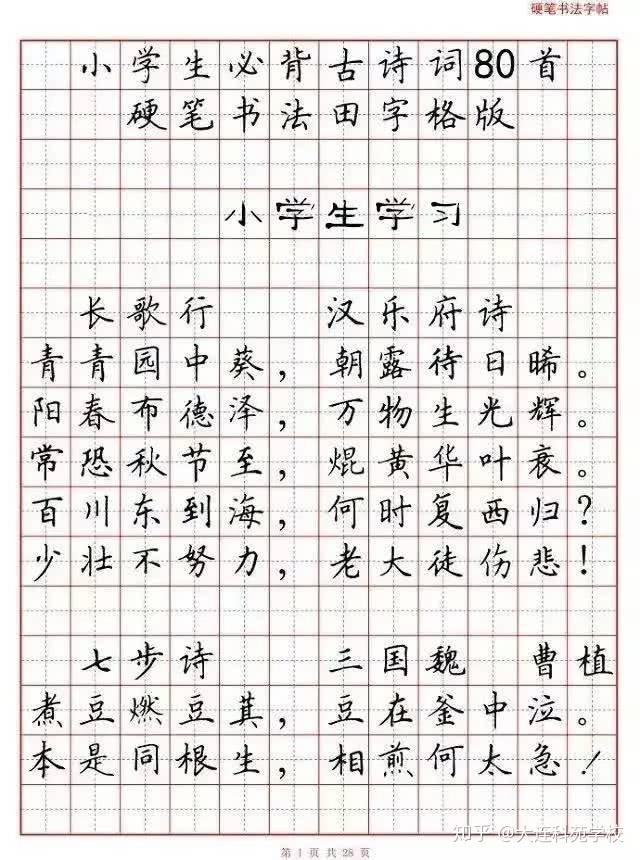 硬笔书法字帖
小学生必背古诗词80首
硬笔书法田字格版
小学生学习
长歌行 汉乐府诗
青青园中葵，朝露待日晞。
阳春布德泽，万物生光辉。
常恐秋节至，焜黄华叶衰。
百川东到海，何时复西归？
少壮不努力，老大徒伤悲！
七步诗 三国魏 曹植
煮豆燃豆萁，豆在釜中泣。
本是同根生，相煎何太急！
知乎 @大连科苑学校
第 1 页 共 28 页